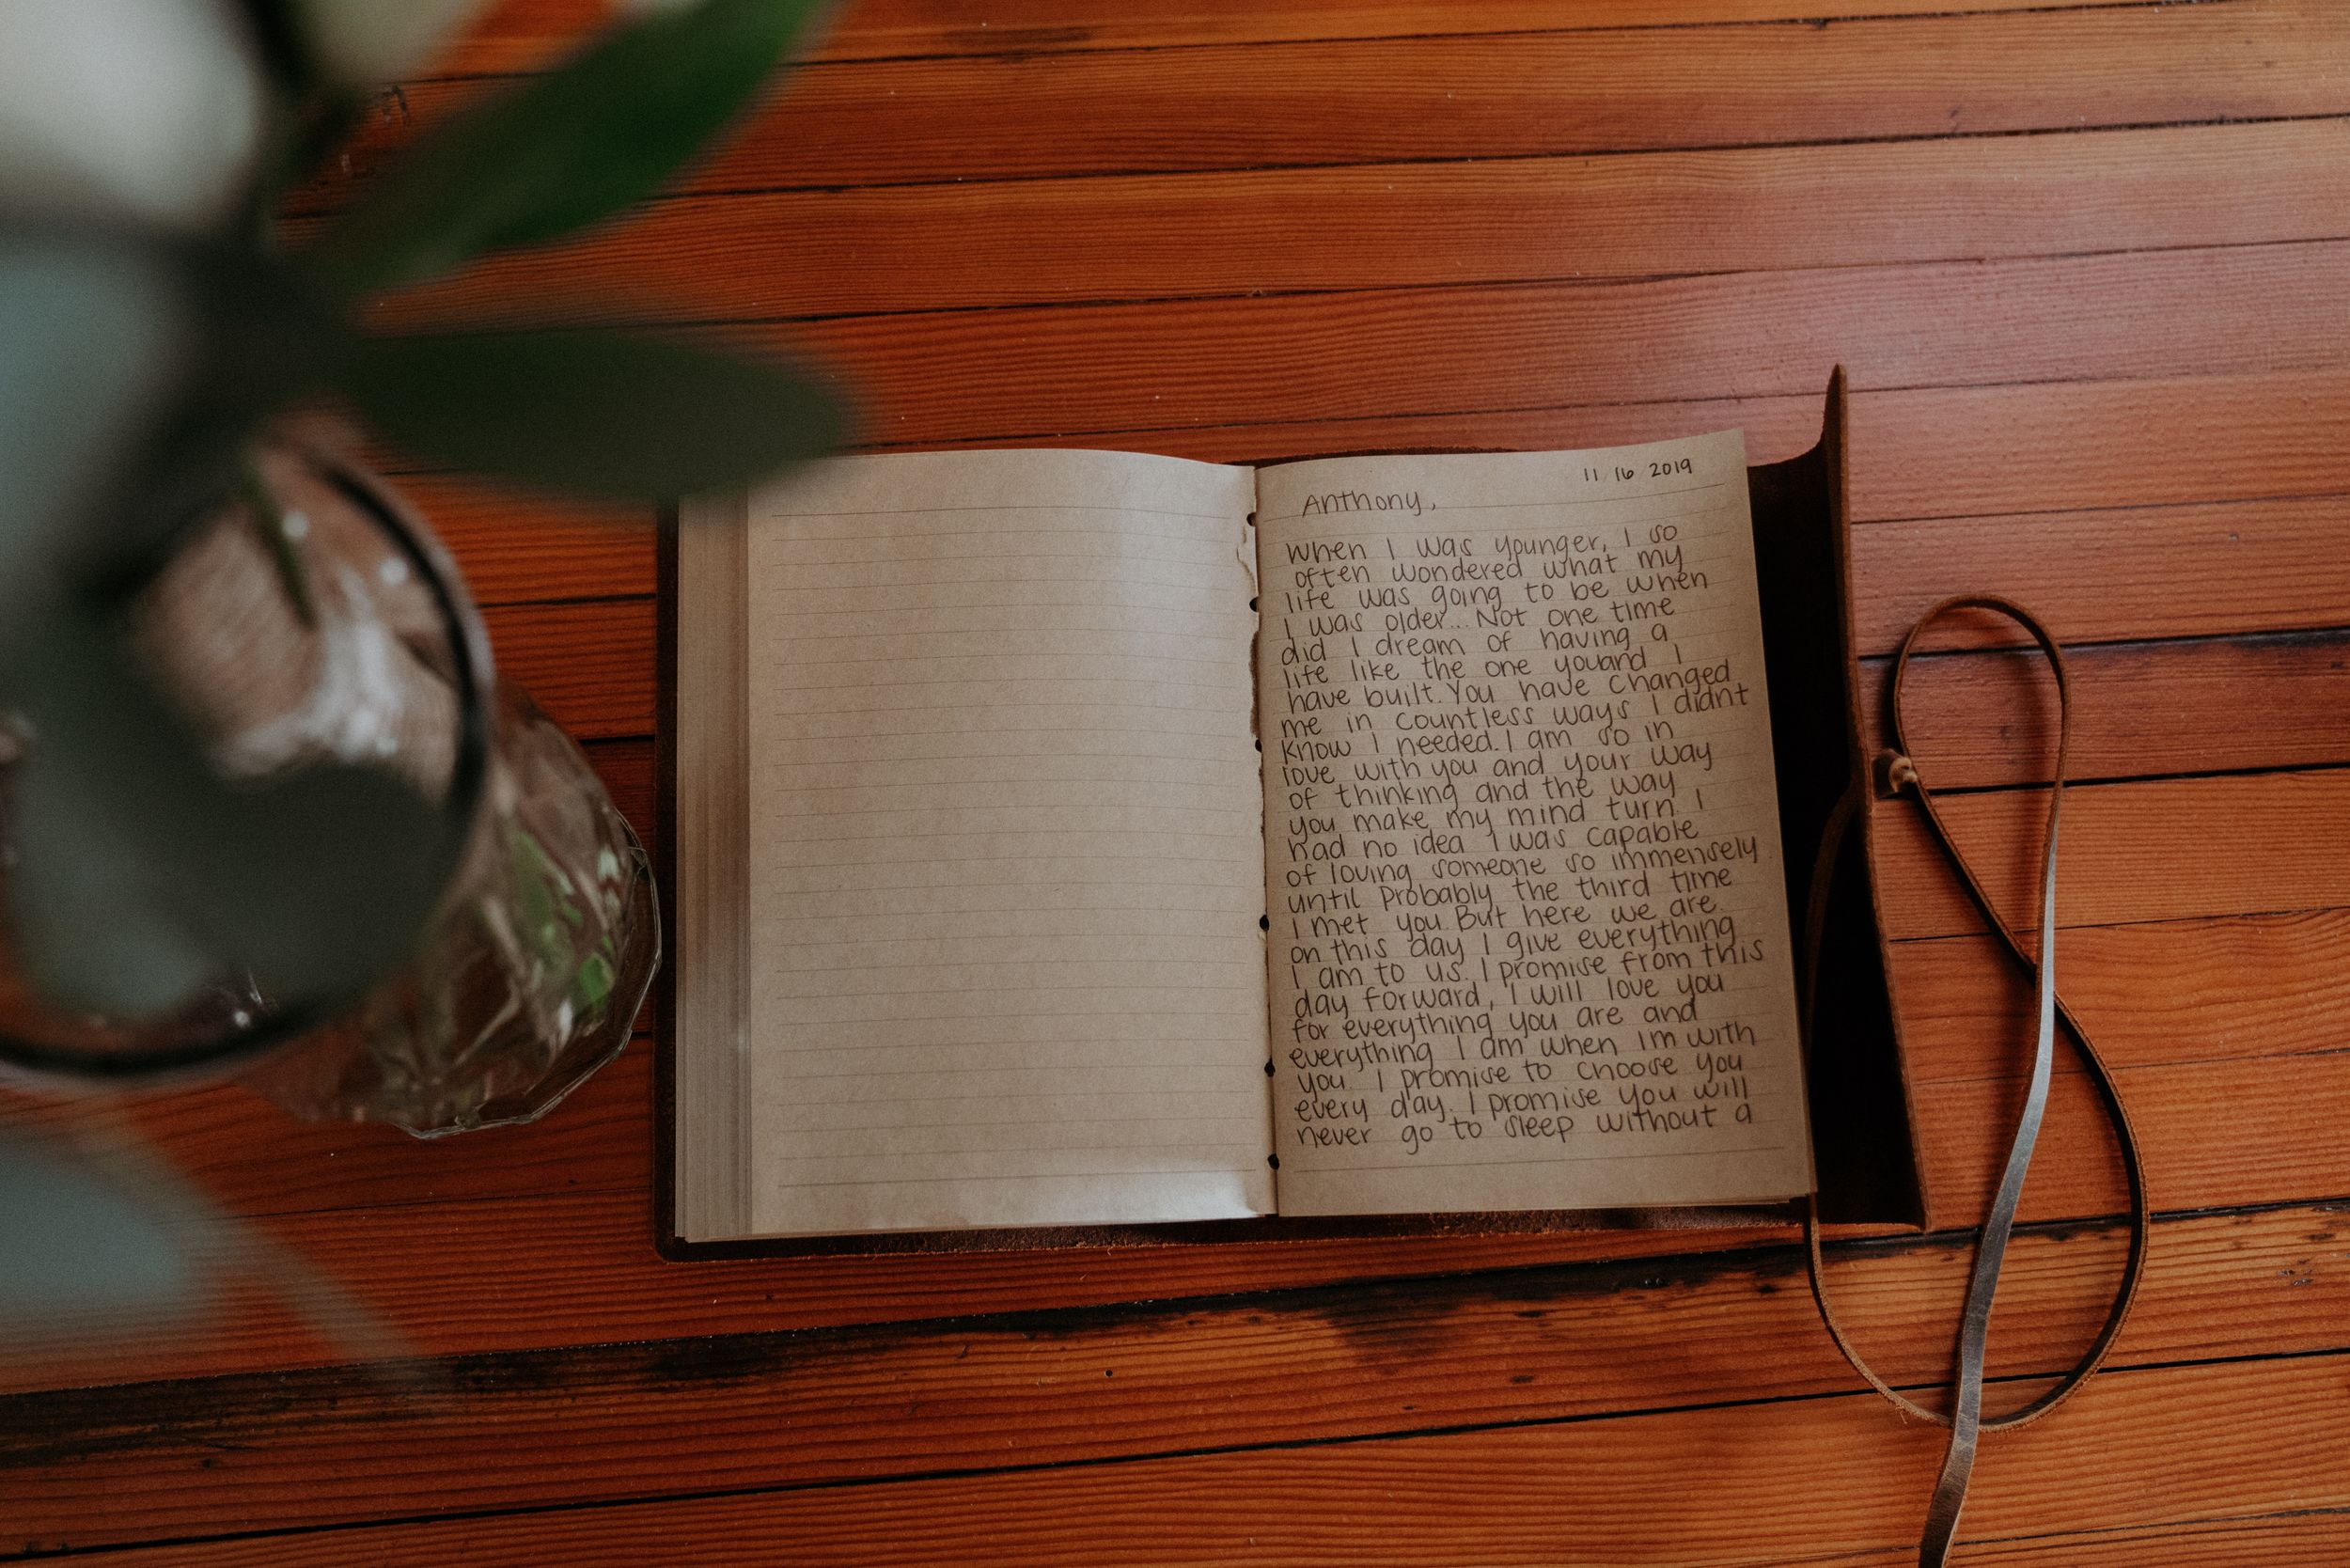 11/16/2019
Anthony,
When I was younger, I so
often wondered what my
life was going to be when
I was older... Not one time
did I dream of having a
life like the one youand I
have built. You have changed
me in countless ways I didnt
know I needed. I am so in
love with you and your way
of thinking and the way
you make my mind turn. I
had no idea I was capable
of loving someone so immensely
until probably the third time
I met you. But here we are.
on this day I give everything
I am to us. I promise from this
day forward, I will love you
for everything you are and
everything I am when Im with
you. I promise to choose you
every day. I promise you will
never go to sleep without a